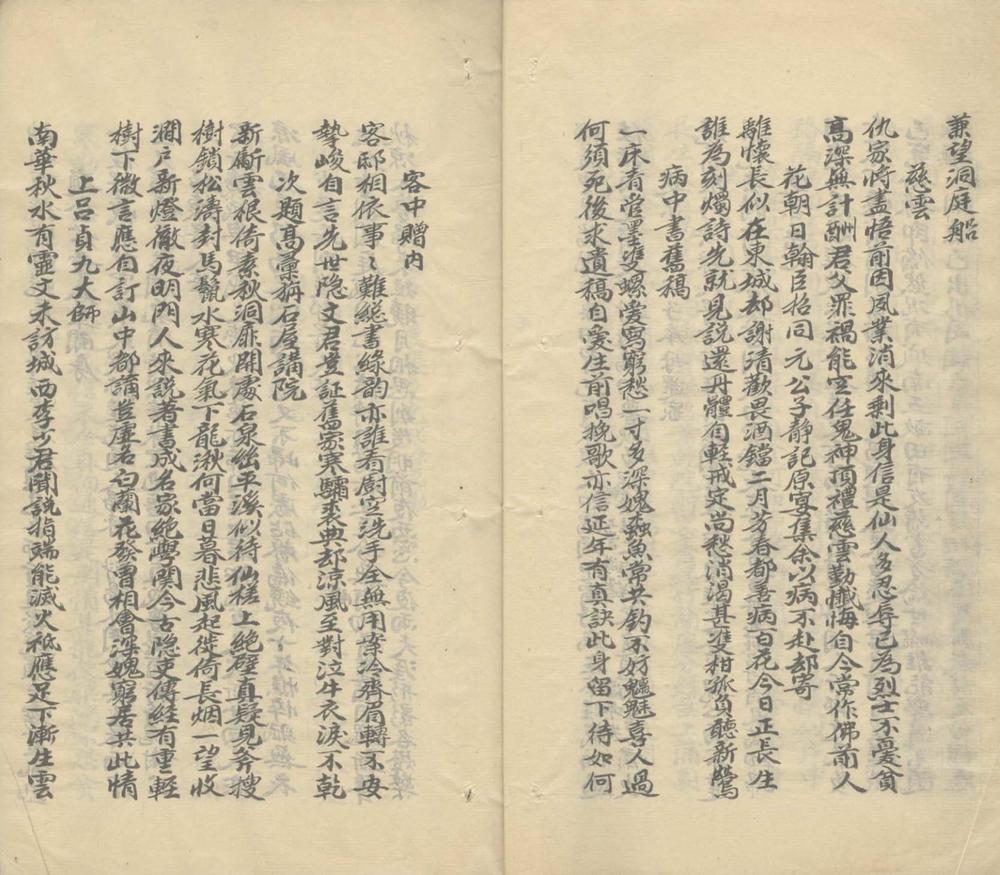 兼望洞庭船
慈雲
仇家將盡悟前因夙業消來剩此身信是仙人多忍辱已為烈士不憂貧
高深無計酬君父罪禍能空任鬼神頂禮慈雲勤懺悔自今常作佛前人
花朝日翰臣招同元公子靜記原宴集余以病不赴却寄
離懷長似在東城却謝清歡畏酒鐺二月芳春都善病百花今日正長生
誰為刻燭詩先就見說還丹體自輕戒定尚愁消渴甚雙柑孤負聽新鶯
病中書舊稿
一床香管墨雙螺愛寫窮愁一寸多深媿蟲魚常共釣不妨魑魅喜人過
何須死後求遺稿自愛生前唱挽歌亦信延年有真訣此身留下待如何
客中贈內
客邸相依事〻難總書綠韵亦誰看廚空洗手全無用案冷齊眉轉不安
摯峻自言先世隐文君豈証舊家寒驌裘典却涼風至對泣牛衣淚不乾
次題高彙旃石屋講院
新斸雲根倚素秋洞扉開處石泉幽平溪似待仙槎上絕壁真疑見斧搜
樹鎖松濤封馬鬣水寒花氣下龍湫何當日暮悲風起徙倚長烟一望收
澗戶新燈徹夜明門人來說著書成名家絕學関今古隐吏傳經有重輕
樹下微言應自訂山中都講豈虛名幽蘭花發曾相會深媿窮居共此情
上呂貞九大師
南華秋水有靈文未訪城西李少君聞說指端能滅火祗應足下漸生雲